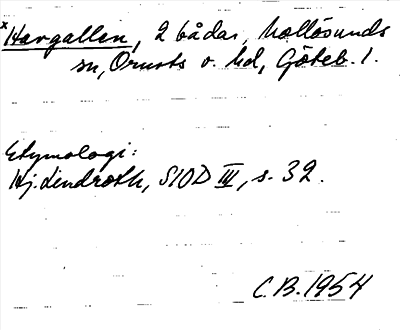 x Hargallen, 2 bådar, Mollösunds
sn, Orusts v. hd, Göteb. l.
Etymologi:
Hj. Lindroth, SIOD III, s. 32.
C.B. 1954